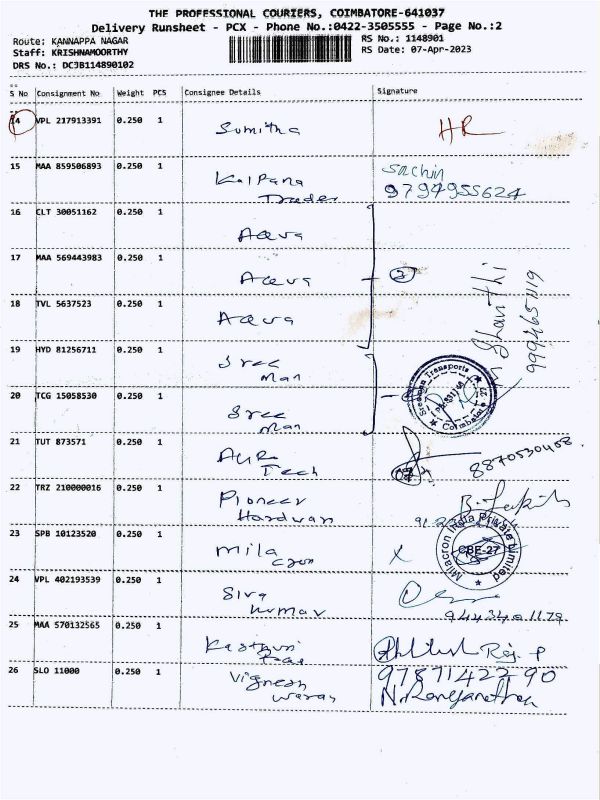 THE PROFESSIONAL COURIERS, COIMBATORE-641037
Delivery Runsheet - PCX - Phone No.:0422-3505555 - Page No.:2
Route: KANNAPPA NAGAR
Staff: KRISHNAMOORTHY
DRS No.: DC3B114890102
RS No.: 1148901
RS Date: 07-Apr-2023
S No Consignment No Weight PCS Consignee Details Signature
14 VPL 217913391 0.250 1 Sumitha HR
15 MAA 859506893 0.250 1 Kalpana Trader Sachin 9794955624
16 CLT 30051162 0.250 1 Aqua
17 MAA 569443983 0.250 1 Aqua 3
18 TVL 5637523 0.250 1 Aqua
Shanthi
9994651119
19 HYD 81256711 0.250 1 Sree Man
20 TCG 15058530 0.250 1 Sree Man
Sreeman Transports
Coimbatore
21 TUT 873571 0.250 1 Aura Tech
22 TRZ 210000016 0.250 1 Pioneer Hardwar
23 SPB 10123520 0.250 1 Mila cron X
Milacron India Private Limited
CBE-27
24 VPL 402193539 0.250 1 Siva kumar
25 MAA 570132565 0.250 1 Kasthuri
26 SLO 11000 0.250 1 Vignesh waran 9787142290
N. Ranganathan